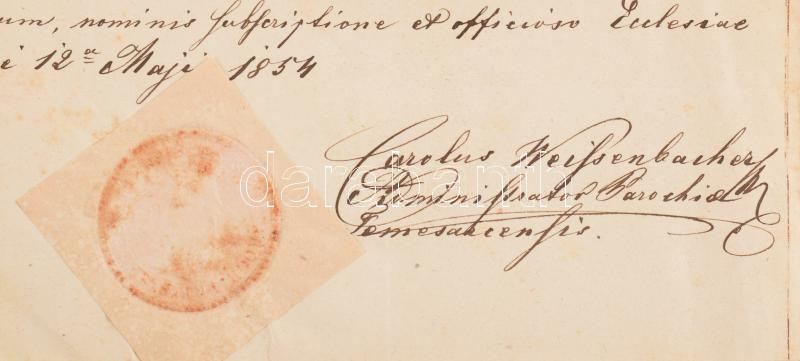 um, nominis subscriptione et officioso Eclesiae
i 12ª Maji 1854
Carolus Weissenbacher
Administrator Parochiae
Temesaccensis.
darabanth